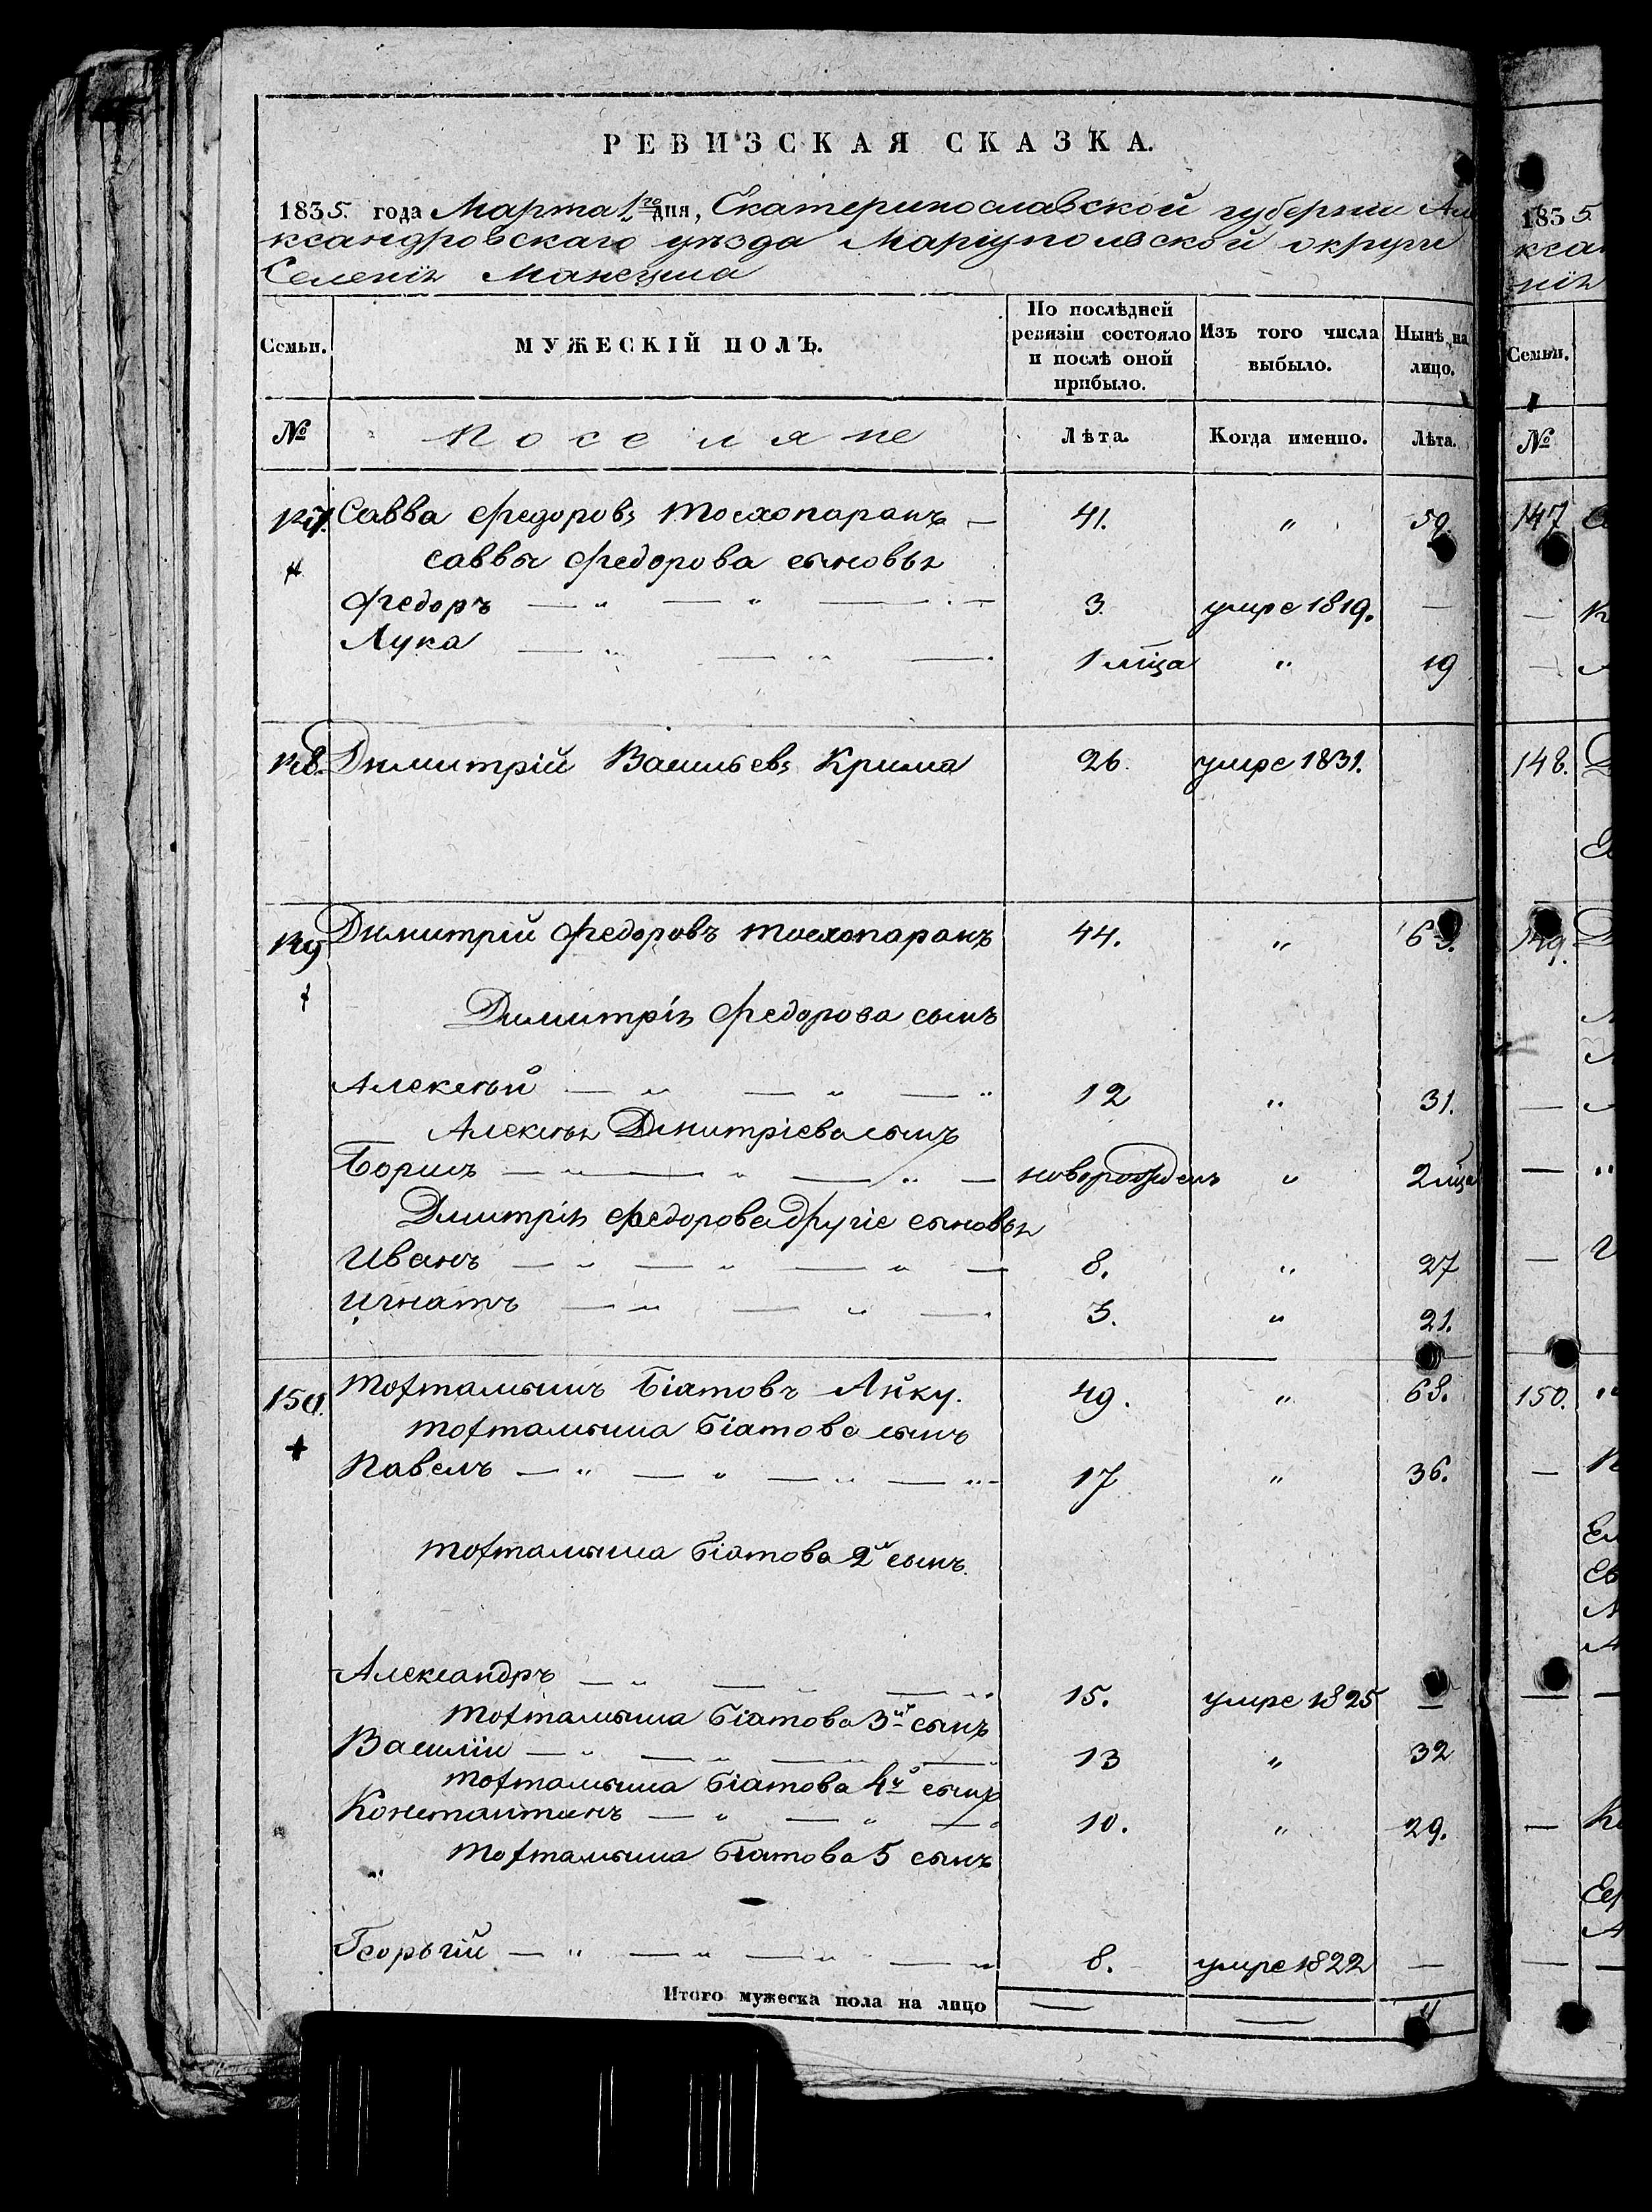 РЕВИЗСКАЯ СКАЗКА.
1835. года Марта 1го дня, Екатеринославской губернии Але
ксандровскаго уѣзда Мариупольской округи
Селенiя Мангуша
Семьи. МУЖЕСКІЙ ПОЛЪ. По послѣдней ревизіи состояло и послѣ оной прибыло. Изъ того числа выбыло. Нынѣ на лицо.
№ Поселяне Лѣта. Когда именно. Лѣта.
147. Савва Федоровъ Тосхопаранъ — 41. " 59.
Саввы Федорова сыновья
Федоръ — " — " — 3. умре 1819. —
Лука — " — " — 1 мца " 19
148. Димитрій Васильевъ Крима 26. умре 1831.
149 Димитрій Федоровъ Тосхопаранъ 44. " 63.
Димитрія Федорова сынъ
Алексѣй — " — " — " 12 " 31.
Алексѣя Дмитріева сынъ
Борисъ — " — " — " — новорожденъ " 2 мца
Дмитрія Федорова другіе сыновья
Иванъ — " — " — " — 8. " 27
Игнатъ — " — " — 3. " 21.
150. Тохтамышъ Біатовъ Айку. 49. " 68.
Тохтамыша Біатова сынъ
Павелъ — " — " — " — " 17 " 36.
Тохтамыша Біатова 2й сынъ.
Александръ — " — " — " 15. умре 1825 —
Тохтамыша Біатова 3й сынъ
Василій — " — " — " — " 13 " 32
Тохтамыша Біатова 4й сынъ
Константинъ — " — " — " 10. " 29.
Тохтамыша Біатова 5 сынъ
Георгій — " — " — " — " 8. умре 1822 —
Итого мужеска пола на лицо — —
1835
ксан
нія
Семьи.
№
147
148.
149.
150.